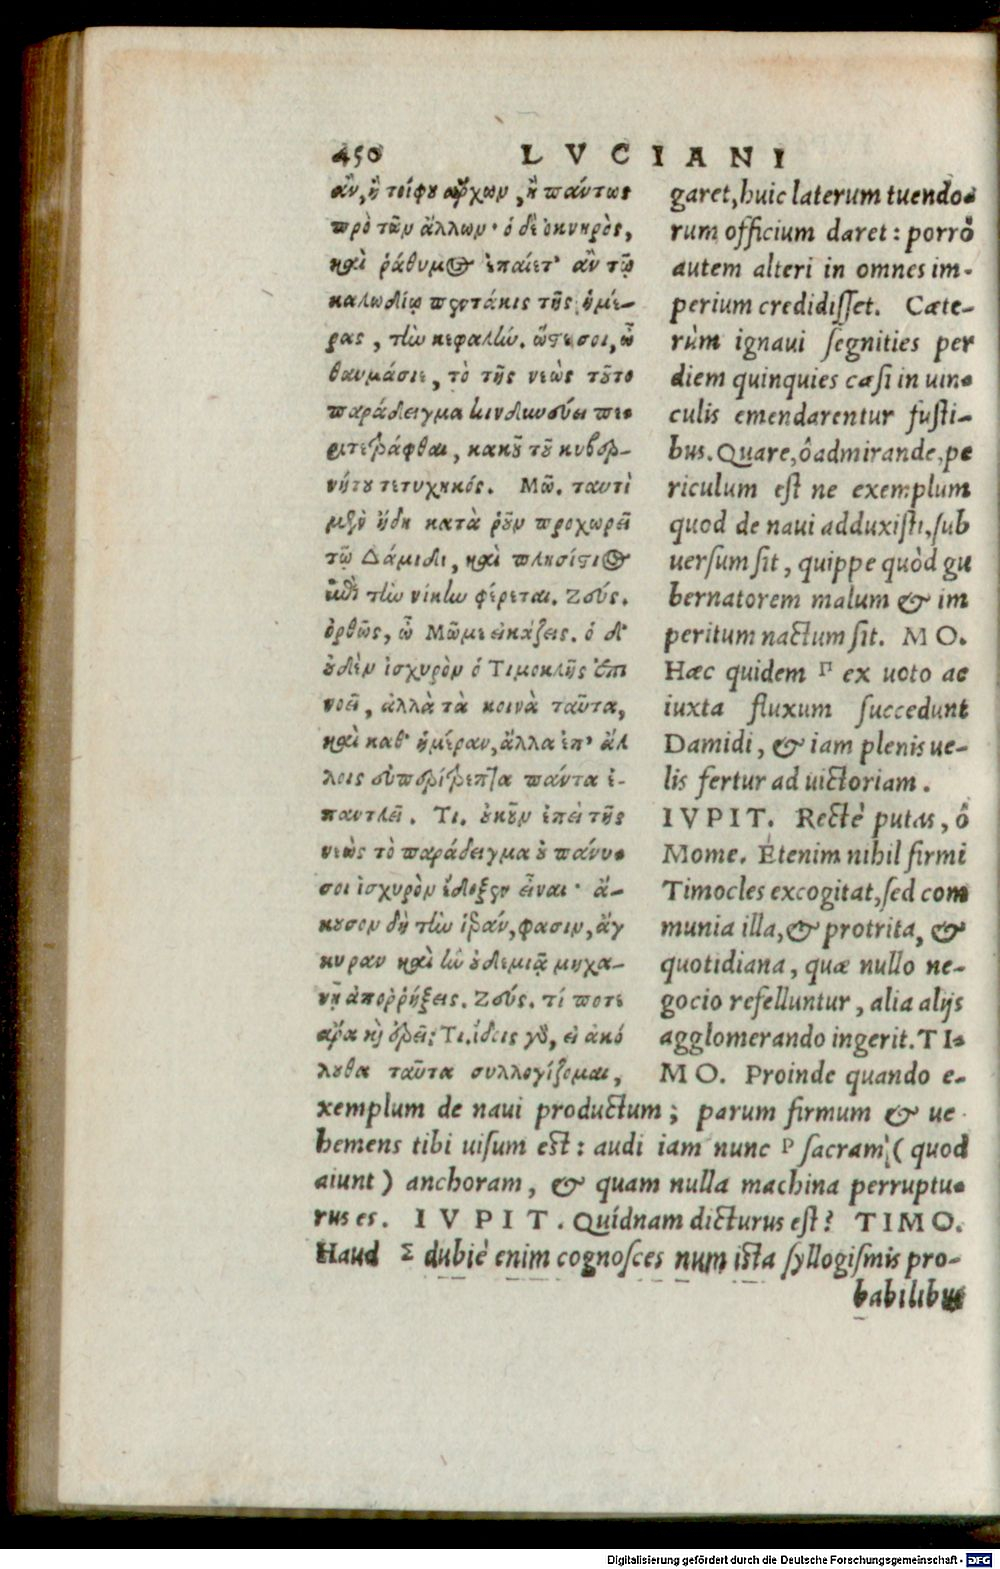 450 LVCIANI
ἂν, ἢ τοίχου ἄρχων, ἢ πάντως
πρὸ τῶν ἄλλων· ὁ δὲ ὀκνηρὸς,
καὶ ῥάθυμος ἐπαίετ' ἂν τῷ
καλωδίῳ πεντάκις τῆς ἡμέ-
ρας, τὴν κεφαλήν. ὥστε σοι, ὦ
θαυμάσιε, τὸ τῆς νεὼς τοῦτο
παράδειγμα κινδυνεύει πε-
ριτετράφθαι, κακοῦ τοῦ κυβερ-
νήτου τετυχηκός. Μῶ. ταυτὶ
μὲν ἤδη κατὰ ῥοῦν προχωρεῖ
τῷ Δάμιδι, καὶ πλησίστιος
ἐπὶ τὴν νίκην φέρεται. Ζεύς.
ὀρθῶς, ὦ Μῶμε εἰκάζεις. ὁ δ'
οὐδὲν ἰσχυρὸν ὁ Τιμοκλῆς ἐπι
νοεῖ, ἀλλὰ τὰ κοινὰ ταῦτα,
καὶ καθ' ἡμέραν, ἄλλα ἐπ' ἄλ
λοις εὐπερίτρεπτα πάντα ἐ-
παντλεῖ. Τι. οὐκοῦν ἐπεὶ τῆς
νεὼς τὸ παράδειγμα οὐ πάνυ
σοι ἰσχυρὸν ἔδοξεν εἶναι· ἄ-
κουσον δὴ τὴν ἱερὰν, φασιν, ἄγ
κυραν καὶ ἣν οὐδεμιᾷ μηχα-
νῇ ἀπορρήξεις. Ζεύς. τί ποτε
ἄρα καὶ ἐρεῖ; Τι. ἴδοις γὰρ, εἰ ἀκό
λουθα ταῦτα συλλογίζομαι,
garet, huic laterum tuendo-
rum officium daret: porrò
autem alteri in omnes im-
perium credidisset. Cæte-
rùm ignaui segnities per
diem quinquies cæsi in uin-
culis emendarentur fusti-
bus. Quare, ô admirande, pe
riculum est ne exemplum
quod de naui adduxisti, sub
uersum sit, quippe quòd gu
bernatorem malum & im
peritum nactum sit. MO.
Hæc quidem Π ex uoto ac
iuxta fluxum succedunt
Damidi, & iam plenis ue-
lis fertur ad uictoriam.
IVPIT. Rectè putas, ô
Mome. Etenim nihil firmi
Timocles excogitat, sed com
munia illa, & protrita, &
quotidiana, quæ nullo ne-
gocio refelluntur, alia alijs
agglomerando ingerit. TI-
MO. Proinde quando e-
xemplum de naui productum; parum firmum & ue
hemens tibi uisum est: audi iam nunc Ρ sacram (quod
aiunt) anchoram, & quam nulla machina perruptu-
rus es. IVPIT. Quidnam dicturus est? TIMO.
Haud Σ dubiè enim cognosces num ista syllogismis pro-
babilibus
Digitalisierung gefördert durch die Deutsche Forschungsgemeinschaft - DFG